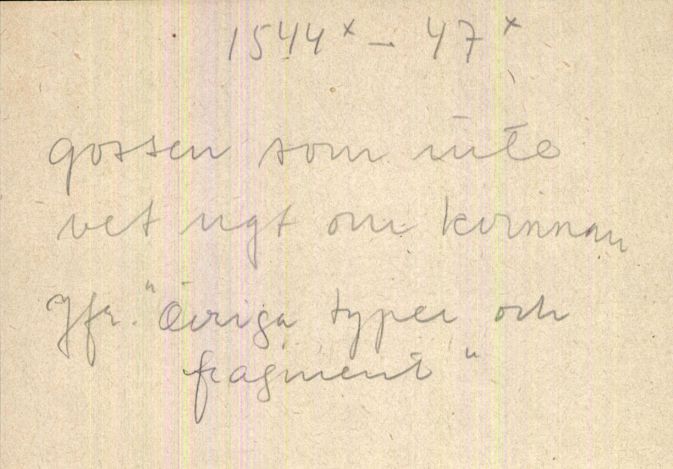 1544x – 47x
gossen som inte
vet ngt om kvinnan
Jfr. "Övriga typer och
fragment"